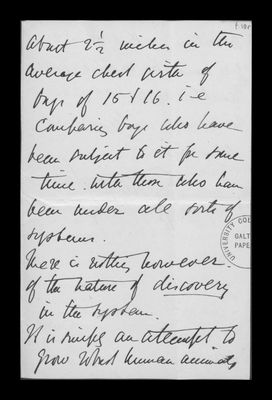 f. 10v
about 2½ inches in the
average chest girth of
boys of 15 & 16. i.e
Comparing boys who have
been subject to it for some
time. with those who have
been under all sorts of
systems.
There is nothing however
of the nature of discovery
in the system.
It is simply an attempt to
grow robust human animals
UNIVERSITY COL
GALT
PAPE